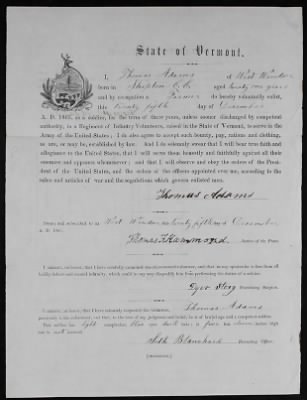 State of Vermont.
I, Thomas Adams of West Windsor
born in Shipton C.E. aged twenty one years
and by occupation a Farmer do hereby volunteer, enlist,
this twenty fifth day of December
A. D. 1863, as a soldier, for the term of three years, unless sooner discharged by competent
authority, in a Regiment of Infantry Volunteers, raised in the State of Vermont, to serve in the
Army of the United States; I do also agree to accept such bounty, pay, rations and clothing,
as are, or may be, established by law. And I do solemnly swear that I will bear true faith and
allegiance to the United States, that I will serve them honestly and faithfully against all their
enemies and opposers whomsoever; and that I will observe and obey the orders of the President
of the United States, and the orders of the officers appointed over me, according to the
rules and articles of war and the regulations which govern enlisted men.
Thomas Adams
Sworn and subscribed to at West Windsor, this twenty fifth day of December
A. D. 186
Hammond, Justice of the Peace.
I certify, on honor, that I have carefully examined the above named volunteer, and that in my opinion he is free from all
bodily defects and mental infirmity, which could in any way disqualify him from performing the duties of a soldier.
Dyer Story Examining Surgeon.
I certify, on honor, that I have minutely inspected the volunteer, Thomas Adams
previously to his enlistment, and that he, to the best of my judgment and belief, is of lawful age and a competent soldier.
This soldier has light complexion, blue eyes, hair, is five feet inches high
Seth Blanchard Recruiting Officer.